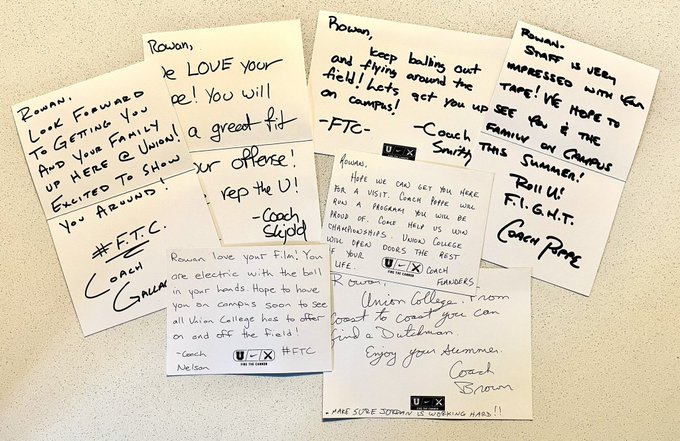 ROWAN.
LOOK FORWARD
TO GETTING YOU
AND YOUR FAMILY
UP HERE @ UNION!
EXCITED TO SHOW
YOU AROUND!
#F.T.C.
COACH
Rowan,
e LOVE your
pe! You will
a great fit
our offense!
rep the U!
-Coach
Skjold
Rowan,
keep balling out
and flying around the
field! Lets get you up
on campus!
-FTC-
-Coach
Smith
ROWAN-
STAFF IS VERY
IMPRESSED WITH YOUR
TAPE! WE HOPE TO
SEE YOU & THE
FAMILY ON CAMPUS
THIS SUMMER!
ROLL U!
F.I.G.H.T.
COACH POPPE
ROWAN,
HOPE WE CAN GET YOU HERE
FOR A VISIT. COACH POPPE WILL
RUN A PROGRAM YOU WILL BE
PROUD OF. COME HELP US WIN
CHAMPIONSHIPS. UNION COLLEGE
WILL OPEN DOORS THE REST
OF YOUR
LIFE.
U X
FIRE THE CANNON
COACH
FLANDERS
Rowan love your film! You
are electric with the ball
in your hands. Hope to have
you on campus soon to see
all Union College has to offer
on and off the field!
-Coach
Nelson
U X
FIRE THE CANNON
#FTC
Rowan,
Union College. From
Coast to coast you can
find a Dutchman.
Enjoy your summer.
Coach
Brown
U X
- MAKE SURE JORDAN IS WORKING HARD!!